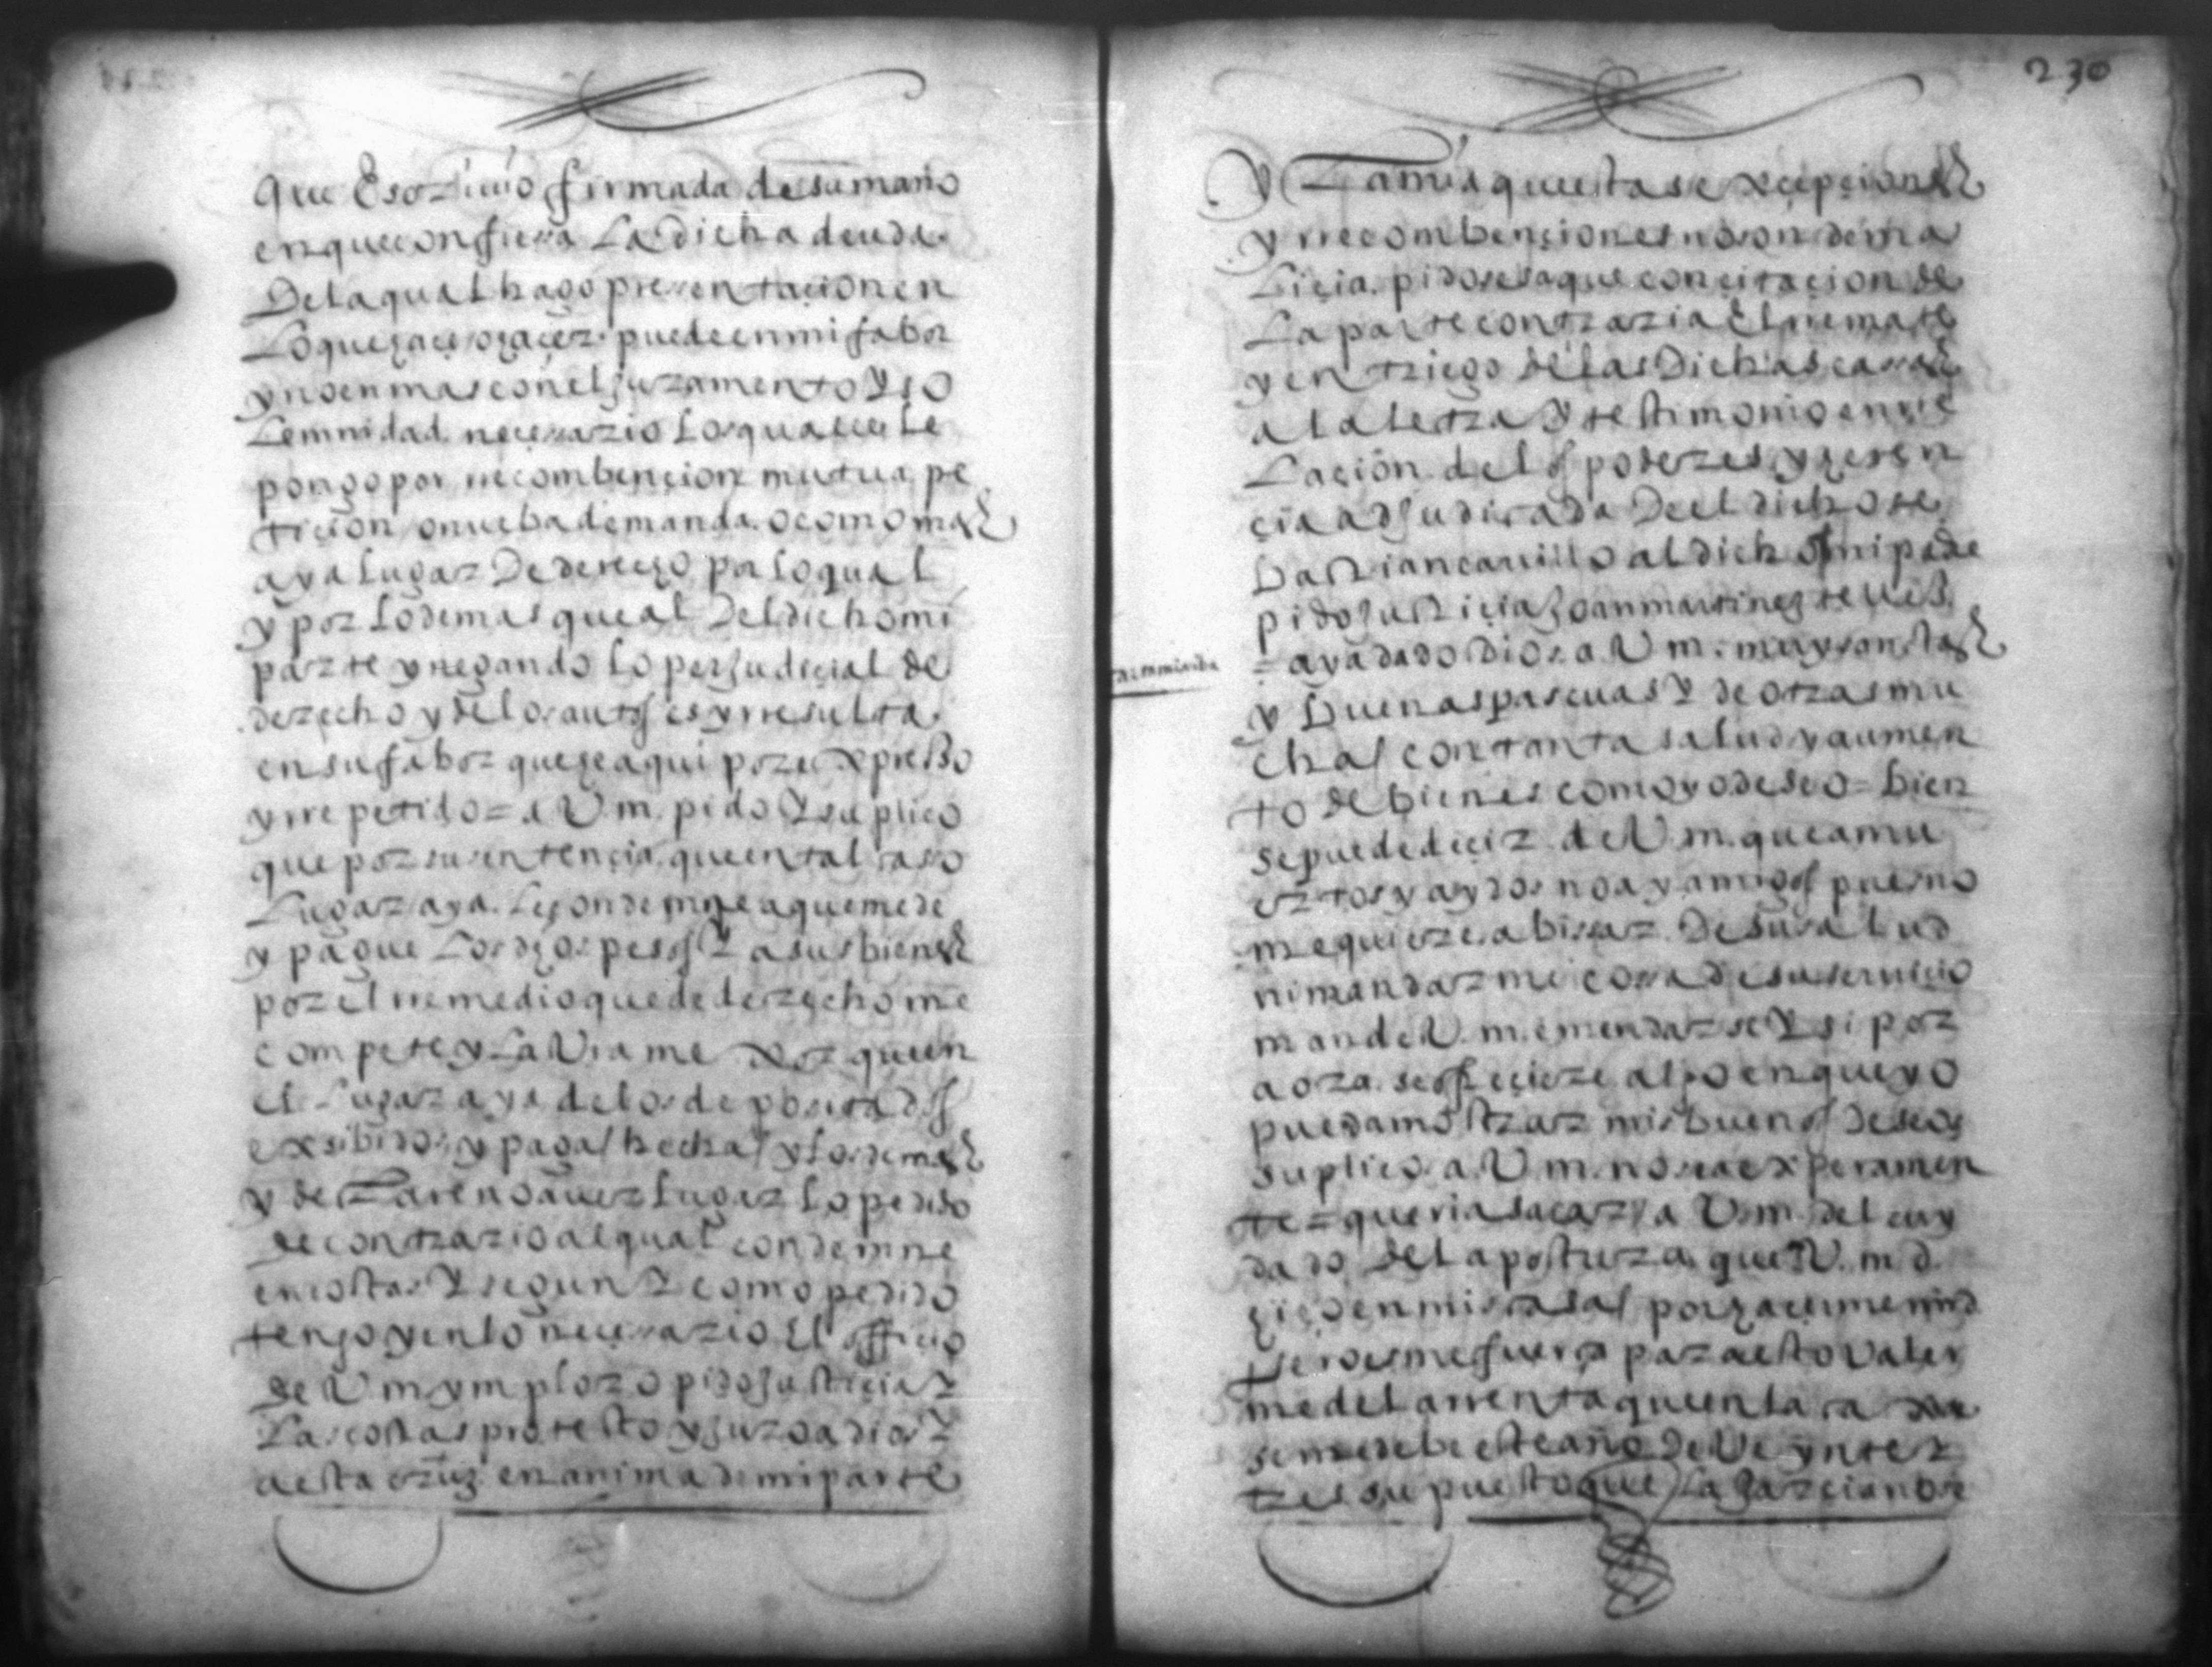 que Esoriuio firmada de su mano
en que confiessa La dicha deuda
De la qual hago pressentacion en
Lo que haçe o haçer puede en mi fabor
y no en mas con el juramento Y so
Lemnidad neçessario Lo qual le
pongo por rrecombençion mutua pe
tiçion o nueba demanda o como mas
aya lugar De derecho por lo qual
y por Lo demas que al Del dicho mi
parte y negando lo perjudiçial de
derecho y de los autos es y rresulta
en su fabor que he aqui por expresso
y rrepetido = a V m. pido Y suplico
que por su sentençia que en tal caso
Lugar aya Le condemne a que me de
y pague Los dhos pesos Y a sus bienes
por el rremedio que de derecho me
compete y La Via me que en
el Lugar aya de los depositados
exsibidos y pagas hechas y lo demas
y declare no auer lugar lo pedido
de contrario al qual condemne
en costas Y segun Y como pedido
tengo y en lo neçessario El officio
de V m ymploro pido justiçia Y
Las costas protesto y juro a dios Y
a esta cruz en anima de mi parte
230
Y La mia que estas exçepciones
y rrecombençiones no son de ma
Liçia. pido se saque con çitaçion de
La parte contraria El rremate
y entriego de las Dichas cassas
a la letra Y testimonio en rre
Laçion de los poderes y heren
çia adjudicada De el dicho se
bastian carrillo al dicho mi parte
pido justiçia Joan martinez
= aya dado Dios a V m. muy santas
y buenas pascuas Y de otras mu
chas con tanta salud y aumen
to de bienes como yo deseo = bien
se puede deçir de V. m. que a mu
ertos y aydos no ay amigos pues no
me quiere abissar De su salud
ni mandarme cossa de su serviçio
mande V. m. emendarse Y si por
aora se offreçiere algo en que yo
pueda mostrar mis buenos deseos
suplico a V m. no sea experamen
te = queria sacar a V. m. del cuy
dado de la postura que V. m.
hiço en mis casas por haçerme mrd
y me fuerça para esto valer
me de la rrenta que en la ca xa
se me debe este año De Ve ynte
tres supuesto que La